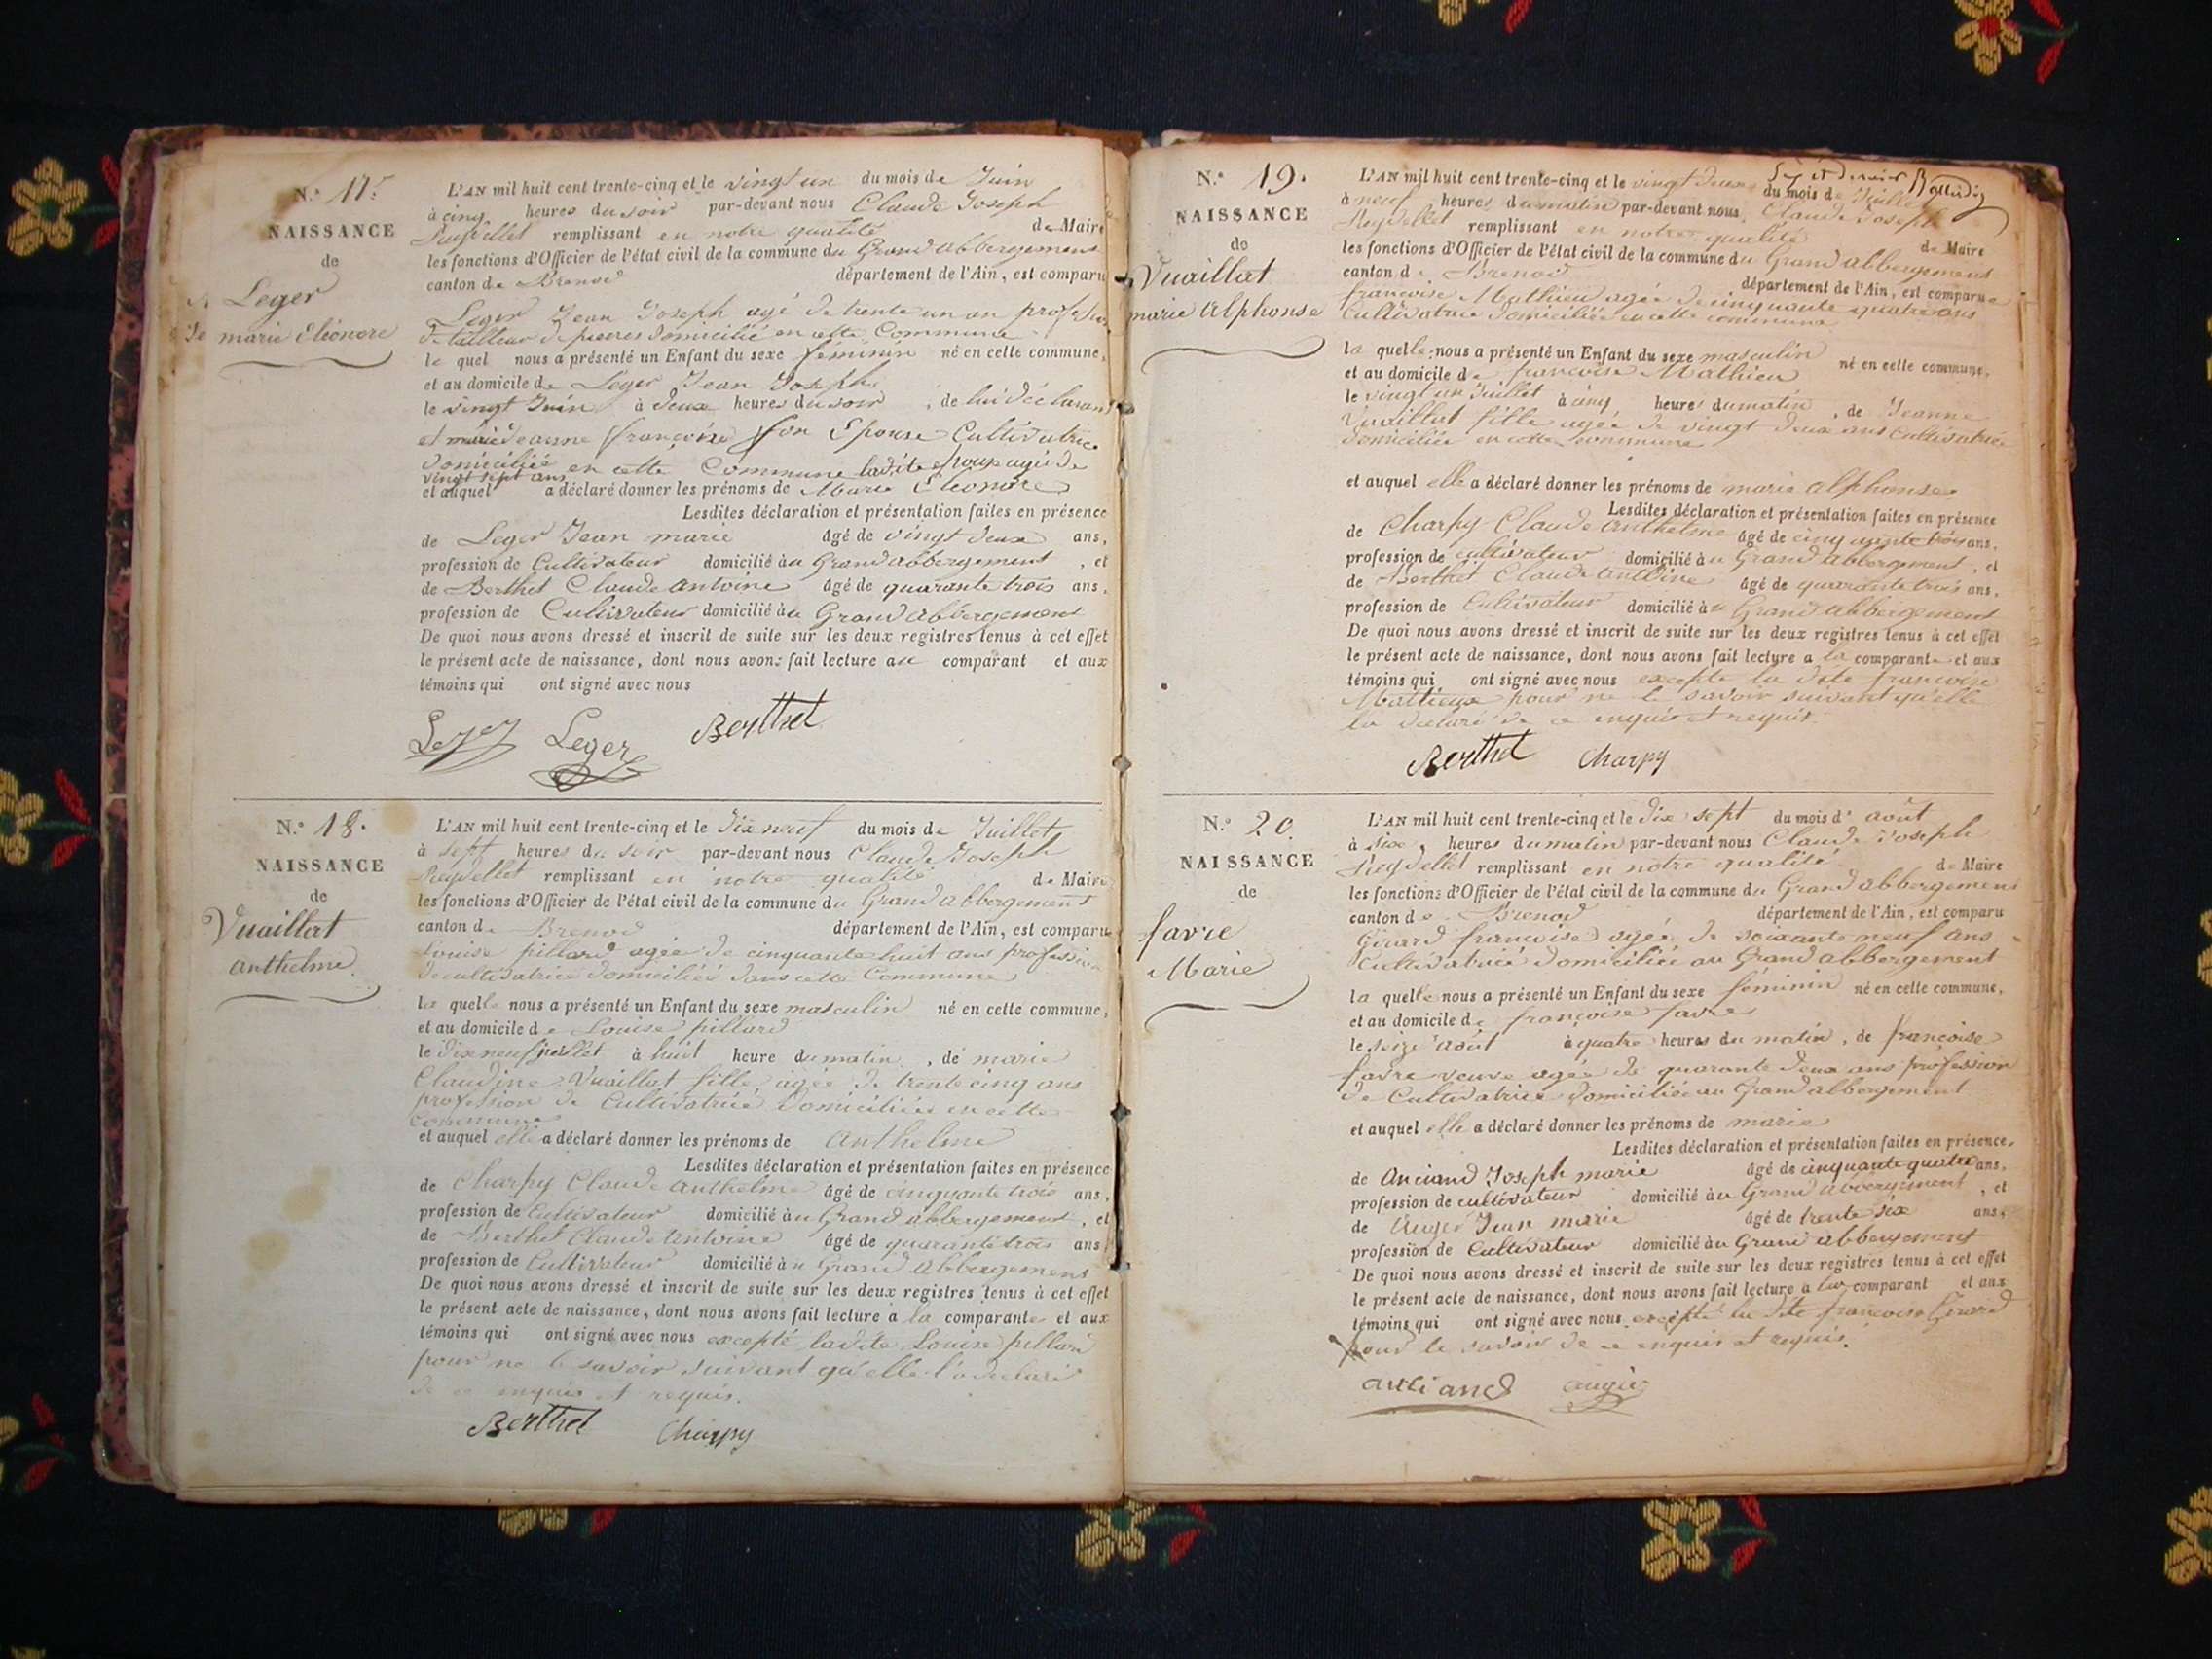 N.° 17.
NAISSANCE
de
Leger
marie Eléonore
L'AN mil huit cent trente-cinq et le vingt un du mois de Juin
à cinq heures du soir par-devant nous Claude Joseph
Reydellet remplissant en notre qualité de Maire
les fonctions d'Officier de l'état civil de la commune du Grand abbergement
canton de Brenod département de l'Ain, est comparu
Leger Jean Joseph agé de trente un an profession
de tailleur de pierres domicilié en cette Commune
le quel nous a présenté un Enfant du sexe féminin né en cette commune,
et au domicile de Léger Jean Joseph
le vingt Juin à deux heures du soir, de lui déclarant
et marie Jeanne françoise son Epouse Cultivatrice
domiciliée en cette Commune ladite epouse agée de
vingt sept ans
et auquel a déclaré donner les prénoms de Marie Eléonore
Lesdites déclaration et présentation faites en présence
de Leger Jean marie âgé de vingt deux ans,
profession de Cultivateur domicilié au Grand abbergement, et
de Berthet Claude antoine âgé de quarante trois ans,
profession de Cultivateur domicilié au Grand abbergement
De quoi nous avons dressé et inscrit de suite sur les deux registres tenus à cet effet
le présent acte de naissance, dont nous avons fait lecture au comparant et aux
témoins qui ont signé avec nous
Leger Leger Berthet
N.° 18.
NAISSANCE
de
Vuaillat
anthelme
L'AN mil huit cent trente-cinq et le dix neuf du mois de Juillet
à sept heures du soir par-devant nous Claude Joseph
Reydellet remplissant en notre qualité de Maire
les fonctions d'Officier de l'état civil de la commune du Grand abbergement
canton de Brenod département de l'Ain, est comparu
Louise pillard agée de cinquante huit ans profession
de cultivatrice domiciliée dans cette Commune
la quelle nous a présenté un Enfant du sexe masculin né en cette commune,
et au domicile de Louise pillard
le dix neuf juillet à huit heure du matin, de marie
Claudine Vuaillat fille agée de trente cinq ans
profession de Cultivatrice domiciliée en cette
commune
et auquel elle a déclaré donner les prénoms de anthelme
Lesdites déclaration et présentation faites en présence
de Charpy Claude anthelme âgé de cinquante trois ans,
profession de Cultivateur domicilié au Grand abbergement, et
de Berthet Claude antoine âgé de quarante trois ans
profession de Cultivateur domicilié au Grand abbergement
De quoi nous avons dressé et inscrit de suite sur les deux registres tenus à cet effet
le présent acte de naissance, dont nous avons fait lecture a la comparante et aux
témoins qui ont signé avec nous excepté ladite Louise pillard
pour ne le savoir suivant qu'elle l'a declaré
de ce enquis et requis.
Berthet Charpy
N.° 19.
NAISSANCE
de
Vuaillat
marie alphonse
L'AN mil huit cent trente-cinq et le vingt deux du mois de Juillet
à neuf heures du matin par-devant nous Claude Joseph
Reydellet remplissant en notre qualité de Maire
les fonctions d'Officier de l'état civil de la commune du Grand abbergement
canton de Brenod département de l'Ain, est comparue
françoise Mathieu agée de cinquante quatre ans
Cultivatrice domiciliée en cette commune
la quelle nous a présenté un Enfant du sexe masculin né en cette commune,
et au domicile de françoise Mathieu
le vingt un Juillet à cinq heures du matin, de Jeanne
Vuaillat fille agée de vingt deux ans Cultivatrice
domiciliée en cette commune
et auquel elle a déclaré donner les prénoms de marie alphonse
Lesdites déclaration et présentation faites en présence
de Charpy Claude anthelme âgé de cinquante trois ans,
profession de cultivateur domicilié au Grand abbergement, et
de Berthet Claude antoine âgé de quarante trois ans,
profession de Cultivateur domicilié au Grand abbergement
De quoi nous avons dressé et inscrit de suite sur les deux registres tenus à cet effet
le présent acte de naissance, dont nous avons fait lecture a la comparante et aux
témoins qui ont signé avec nous excepté la dite françoise
Mathieu pour ne le savoir suivant qu'elle
la declaré de ce enquis et requis.
Berthet Charpy
N.° 20.
NAISSANCE
de
favre
Marie
L'AN mil huit cent trente-cinq et le dix sept du mois d'août
à six heures du matin par-devant nous Claude Joseph
Reydellet remplissant en notre qualité de Maire
les fonctions d'Officier de l'état civil de la commune du Grand abbergement
canton de Brenod département de l'Ain, est comparu
Girard françoise agée de soixante neuf ans
Cultivatrice domiciliée au Grand abbergement
la quelle nous a présenté un Enfant du sexe féminin né en cette commune,
et au domicile de françoise favre
le seize août à quatre heures du matin, de françoise
favre veuve agée de quarante deux ans profession
de Cultivatrice domiciliée au Grand abbergement
et auquel elle a déclaré donner les prénoms de marie
Lesdites déclaration et présentation faites en présence,
de anciand Joseph marie âgé de cinquante quatre ans,
profession de cultivateur domicilié au Grand abbergement, et
de Jean marie âgé de trente six ans,
profession de Cultivateur domicilié au Grand abbergement
De quoi nous avons dressé et inscrit de suite sur les deux registres tenus à cet effet
le présent acte de naissance, dont nous avons fait lecture a la comparant et aux
témoins qui ont signé avec nous excepté la dite françoise Girard
pour le savoir de ce enquis et requis.
anciand